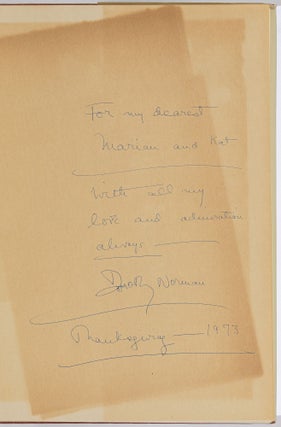 For my dearest
Marian and Kit
With all my
love and admiration
always —
Dorothy Norman
Thanksgiving — 1973